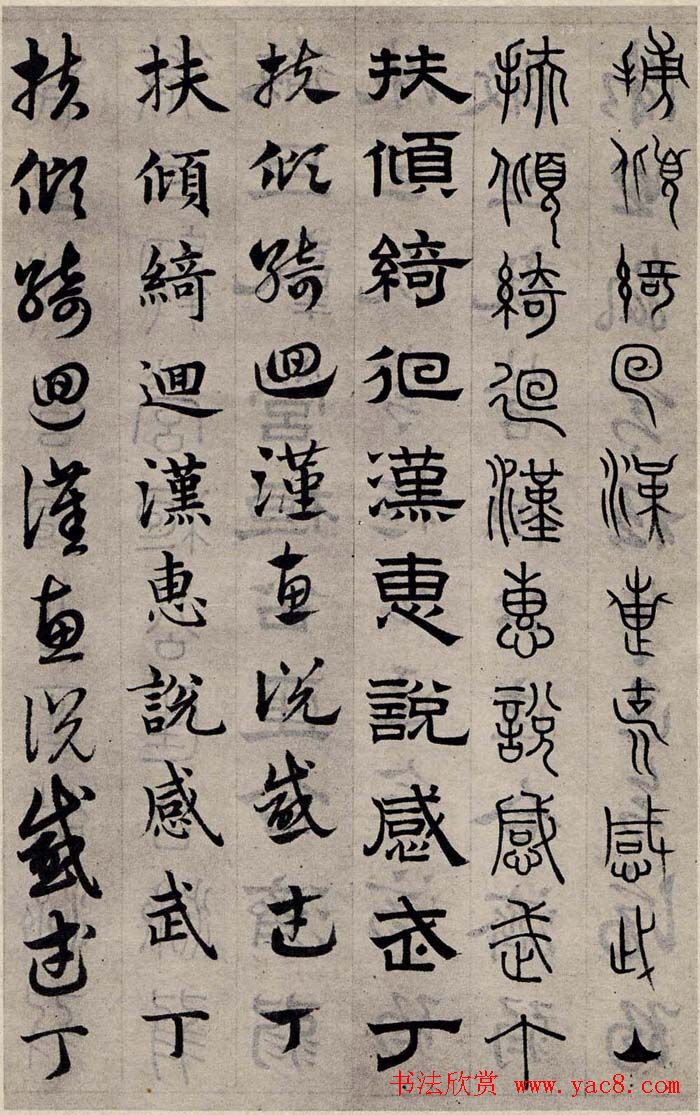 扶傾綺迴漢惠說感武丁
扶傾綺迴漢惠說感武丁
扶傾綺佪漢惠說感武丁
扶傾綺迴漢惠說感武丁
扶傾綺迴漢惠說感武丁
扶傾綺迴漢惠說感武丁
书法欣赏 www.yac8.com